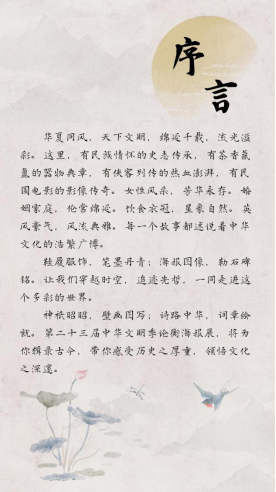 序言
华夏同风，天下文明，绵延千载，流光溢
彩。这里，有民族情怀的史志传承，有茶香氤
氲的器物典章，有侠客列传的热血澎湃，有民
国电影的影像传奇。女性风采，芳华永存。婚
姻家庭，伦常绵延。饮食衣冠，星象自然。英
风豪气，风流典雅。每一个故事都述说着中华
文化的浩繁广博。
鞋履服饰，笔墨丹青；海报图像，勒石碑
铭。让我们穿越时空，追迹先哲，一同走进这
个多彩的世界。
神祇昭昭，壁画图写；诗路中华，词章绘
就。第二十三届中华文明季论衡海报展，将为
你撷录古今，带你感受历史之厚重，领悟文化
之深邃。